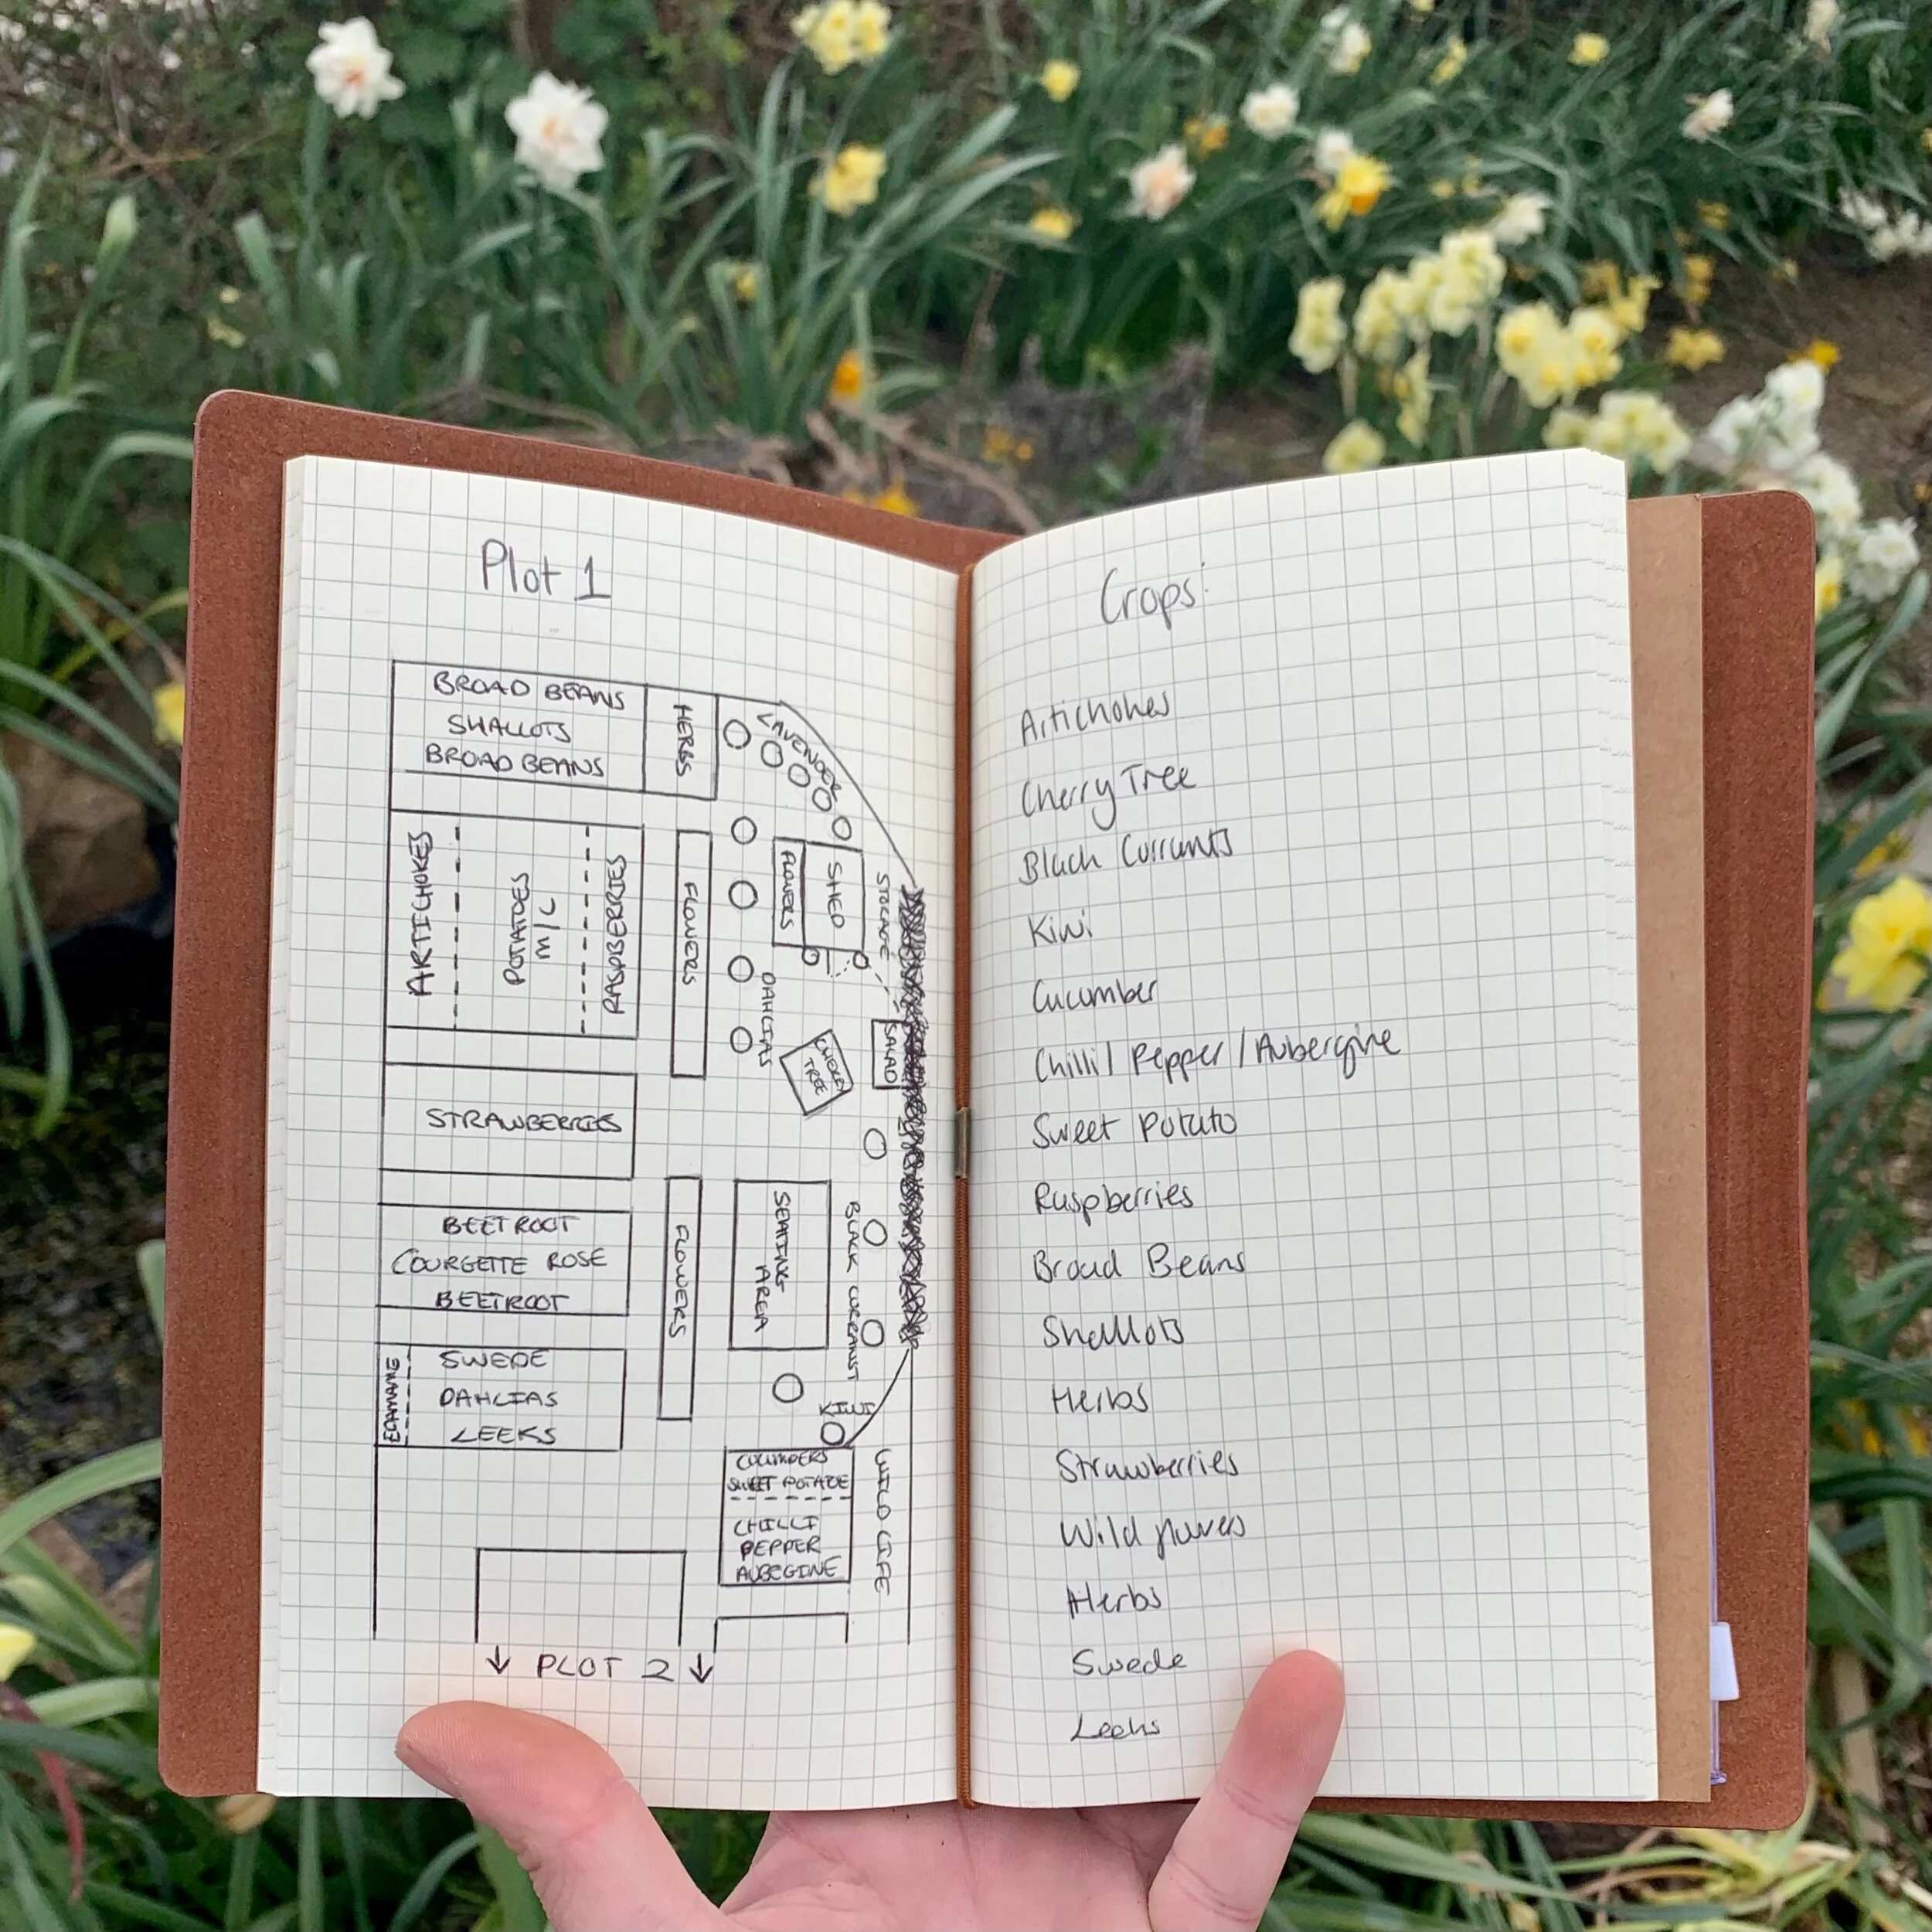 Plot 1
BROAD BEANS
SHALLOTS
BROAD BEANS
HERBS
LAVENDER
ARTICHOKES
POTATOES
M/C
RASPBERRIES
FLOWERS
FLOWERS
SHED
STORAGE
DAHLIAS
CHERRY
TREE
SALAD
STRAWBERRIES
BEETROOT
COURGETTE ROSE
BEETROOT
FLOWERS
SEATING
AREA
BLACK CURRANT
EDAMAME
SWEDE
DAHLIAS
LEEKS
KIWI
SWEET POTATOE
CHILLI
PEPPER
AUBEGINE
WILD LIFE
↓ PLOT 2 ↓
Crops:
Artichokes
Cherry Tree
Black Currants
Kiwi
Cucumber
Chilli / Pepper / Aubergine
Sweet Potato
Raspberries
Broad Beans
Shallots
Herbs
Strawberries
Wild flowers
Herbs
Swede
Leeks